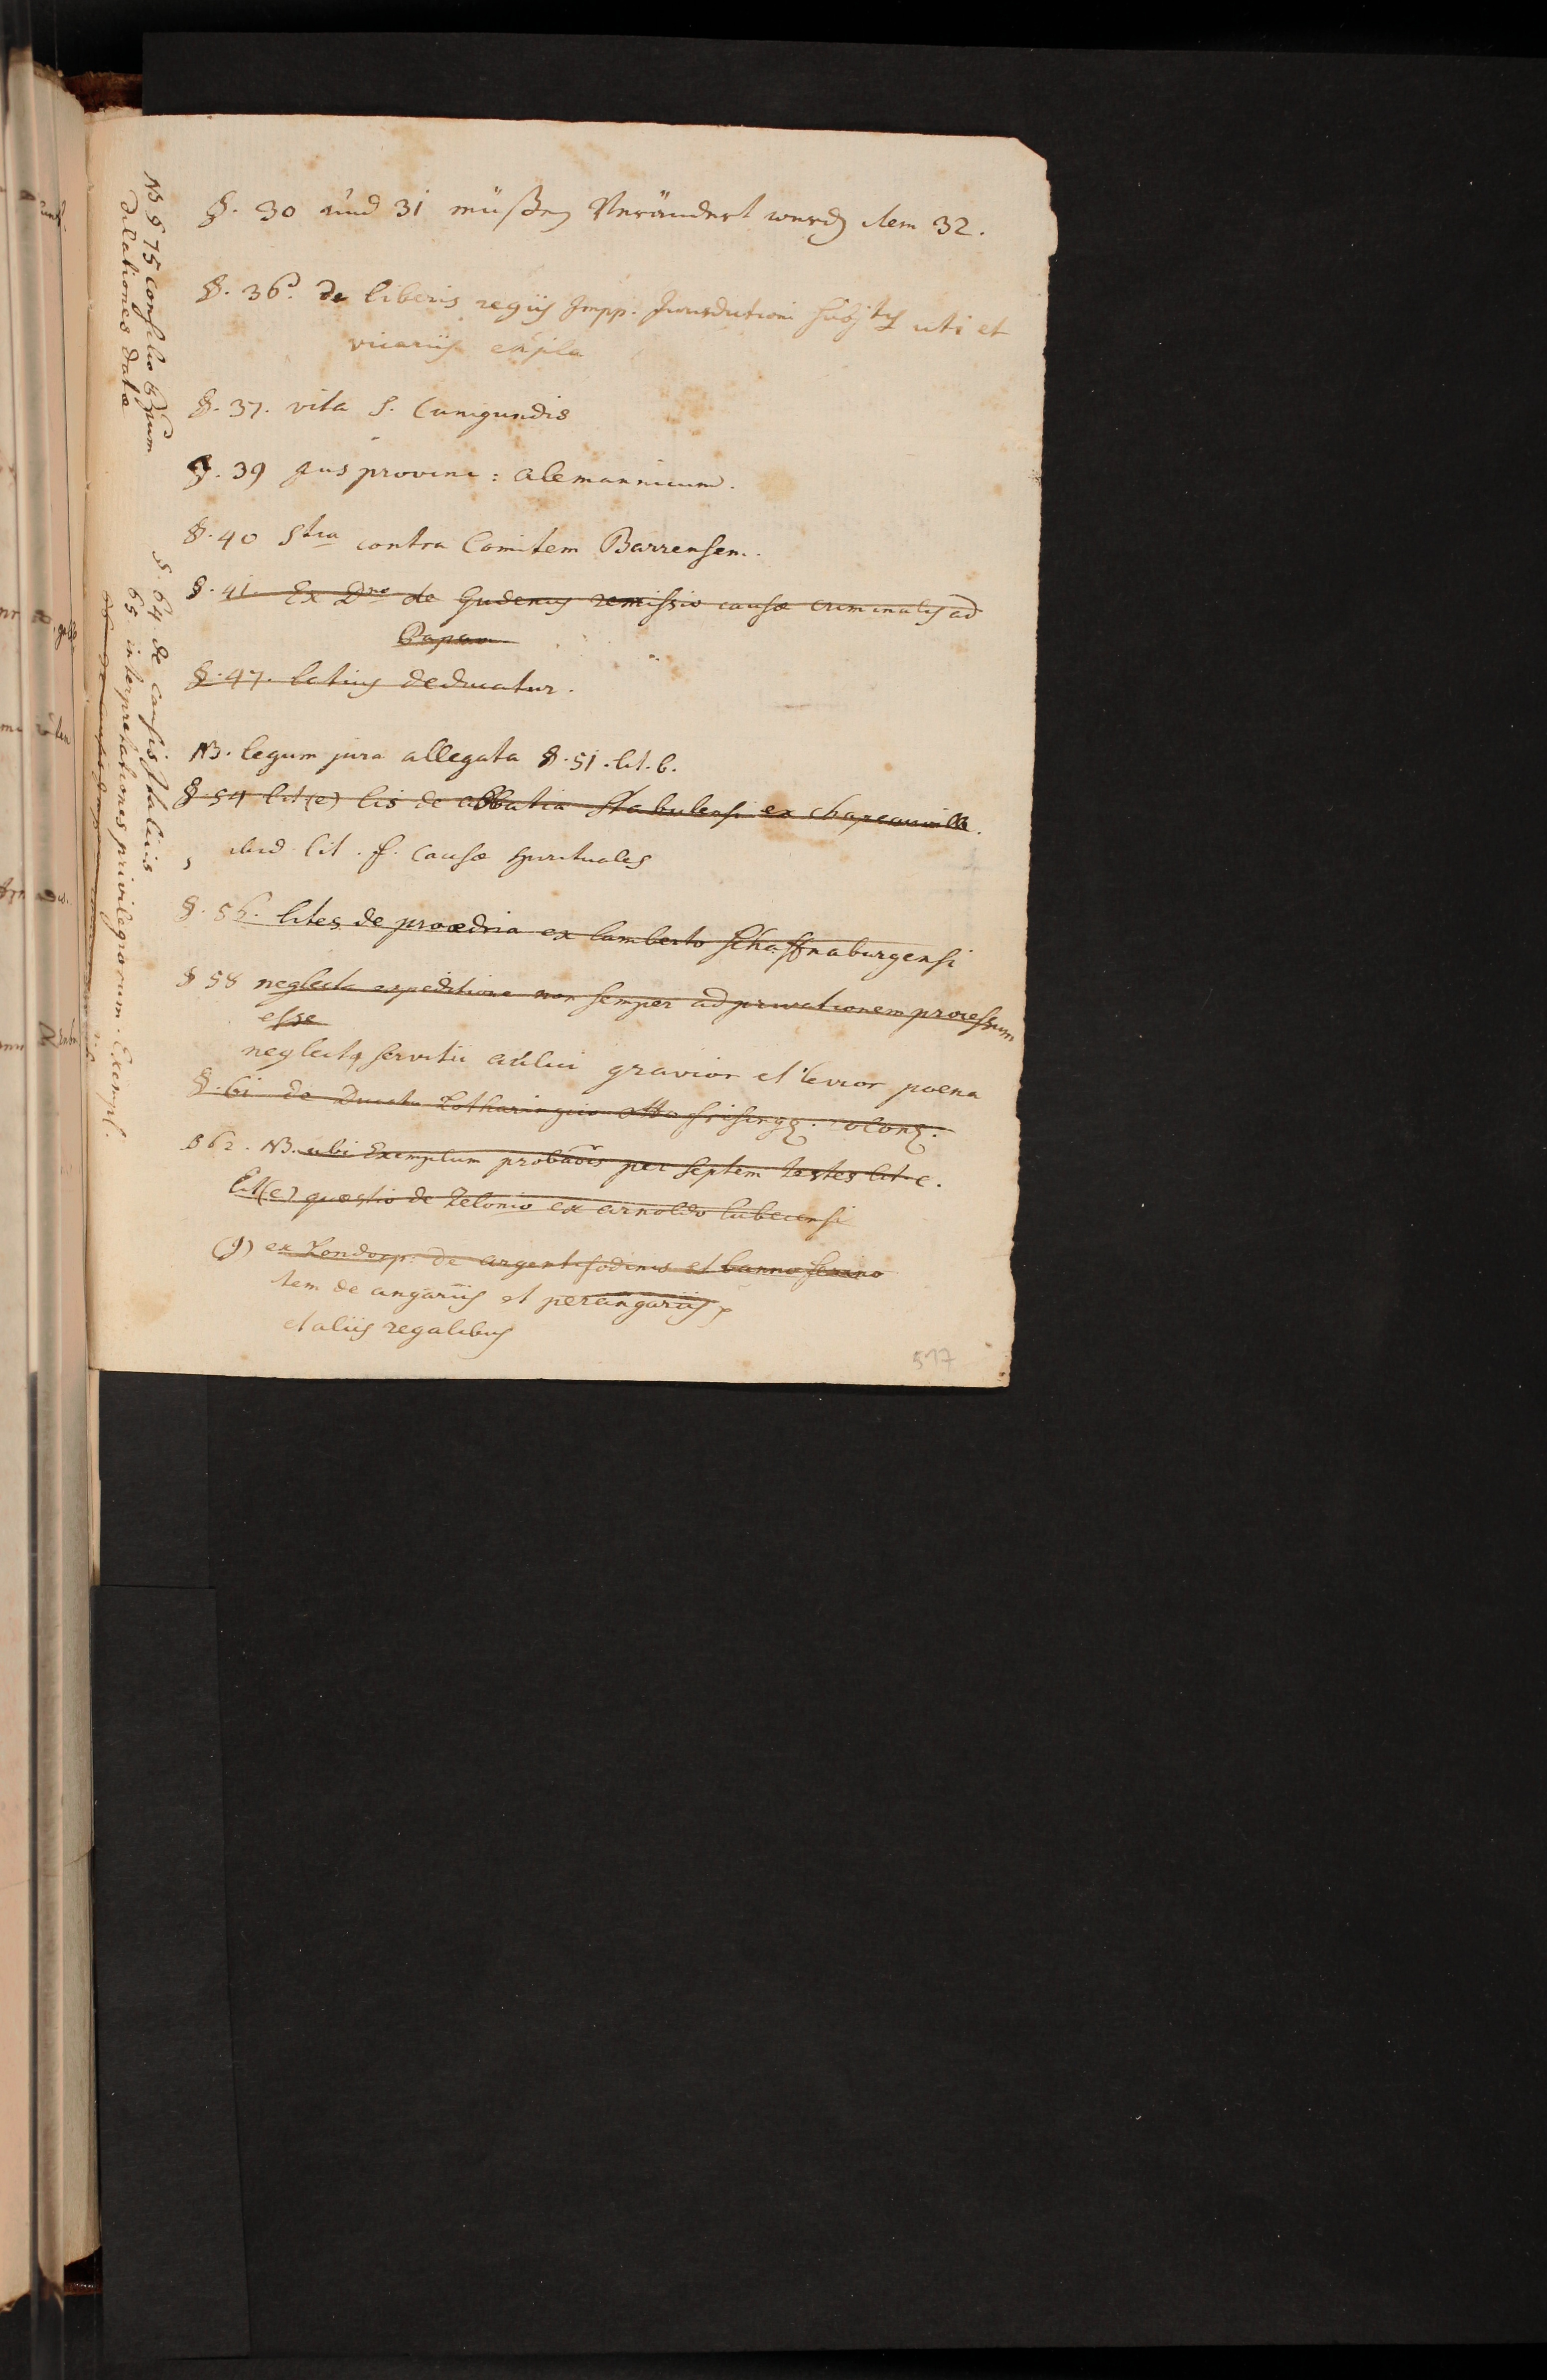 §. 30 und 31 müßen Verändert werd item 32.
§. 36. de liberis regiis Impp. Jurisdictioni subjtis uti et
vicariis expla
§. 37. vita S. Cunigundis
§. 39 Jus provinc: alemannicum.
§. 40 Stia contra Comitem Barrensem.
§. 41. Ex Dno de Gudenus remissio causæ criminalis ad
Papam
§. 47. latius deducatur.
NB. legum jura allegata §. 51. lit. b.
§. 54 lit (e) lis de abbatia Stabulensi ex Chapeauville.
ibid. lit. f. causæ spirituales
§. 56. lites de proædria ex lamberto Schaffnaburgensi
§ 58 neglecta expeditione non semper ad privationem processum
esse
neglecti servitii aulici gravior et levior poena
§. 61 de Ducatu Lotharingico otto frising.
§ 62. NB. ubi Exemplum probaõis per septem testes lit. c.
Lit (e) quæstio de telonio ex arnoldo lubecensi
(g) ex Londorp: de argentifodinis et banno ferino
item de angariis et perangariis
et aliis regalibus
517
NB § 75 Exjum
dilationes datæ
§. 64 de causis Italicis
65 interpretationes privilegiorum. Exempl.